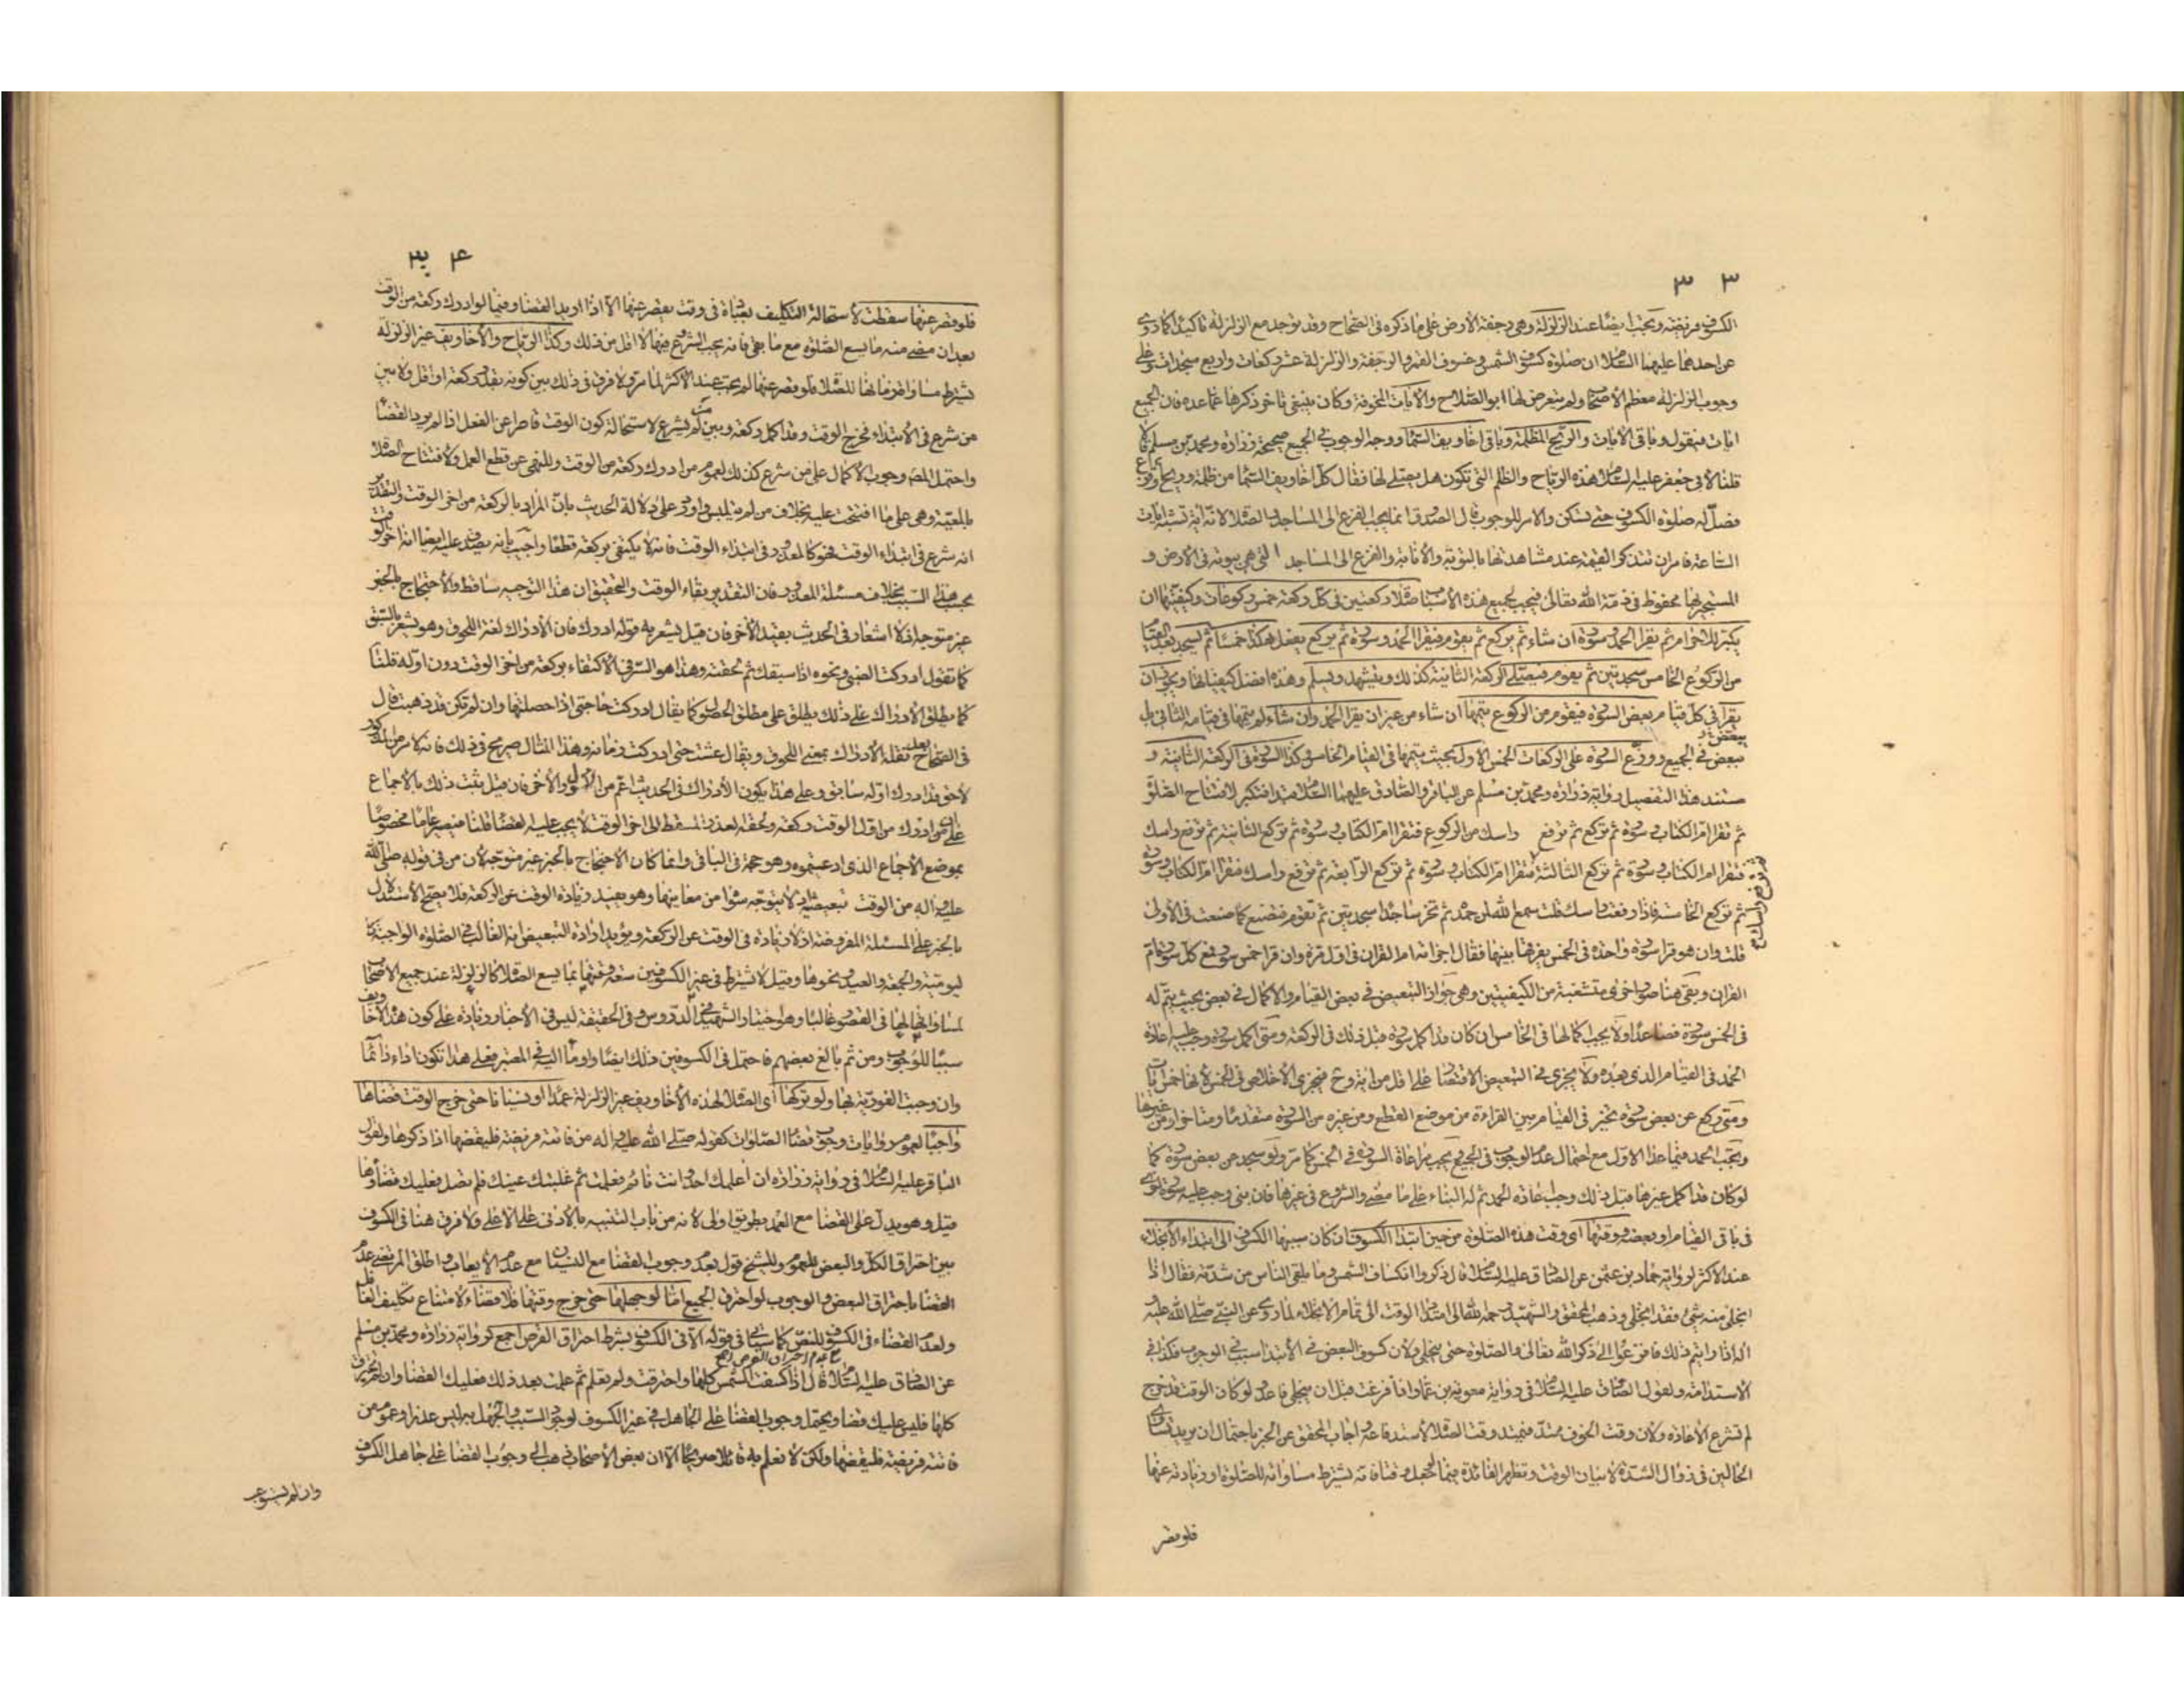 ٣ ٣
الكسوف فريضة وتجب ايضا عند الزلزلة وهى رجفة الارض على ما ذكره فى الصحاح وقد توجد مع الزلزلة تاكيدا كما روى
عن احدهما عليهما السلام ان صلوة كسوف الشمس وخسوف القمر والرجفة والزلزلة عشر ركعات واربع سجدات وعلى
وجوب الزلزلة معظم الاصحاب ولم يتعرض لها ابو الصلاح والايات المخوفة وكان ينبغى تاخر ذكرها عما عده فان الجميع
ايات فيقول وباقى الايات والريح المظلمة وباقى اخاويف السماء ووجه الوجوب فى الجميع صحيحة زرارة ومحمد بن مسلم قالا
قلنا لابى جعفر عليه السلام هذه الرياح والظلم التى تكون هل يصلى لها فقال كل اخاويف السماء من ظلمة وريح او فزع
فصل له صلوة الكسوف حتى تسكن والامر للوجوب قال الصدوق انما يجب الفزع الى المساجد والصلا لانه اية تشبه ايات
الساعة فامر ان نتذكر القيمة عند مشاهدتها بالتوبة والانابة والفزع الى المساجد التى هى بيوته فى الارض و
المستجير بها محفوظ فى ذمة الله تعالى فيجب لجميع هذه الاسباب صلا ركعتين فى كل ركعة خمس ركوعات وكيفيتها ان
يكبر للاحرام ثم يقرا الحمد وسورة ان شاء ثم يركع ثم يقوم فيقرا الحمد وسورة ثم يركع يفعل هكذا خمسا ثم يسجد بعد القيام
من الركوع الخامس سجدتين ثم يقوم فيصلى الركعة الثانية كذلك ويتشهد ويسلم وهذه افضل كيفياتها ويجوز ان
يقرا فى كل قيام بعض السورة فيقوم من الركوع يتمها ان شاء من غير ان يقرا الحمد وان شاء لم يتمها فى قيامه الثانى بل
يبعض
يبعض فى الجميع ووزع السورة على الركعات الخمس الاول بحيث يتمها فى القيام الخامس وكذا السورة فى الركعة الثانية و
مستند هذا التفصيل رواية زرارة ومحمد بن مسلم عن الباقر والصادق عليهما السلام تبدا فتكبر لافتتاح الصلوة
ثم تقرا ام الكتاب وسورة ثم تركع ثم ترفع راسك من الركوع فتقرا ام الكتاب وسورة ثم تركع الثانية ثم ترفع راسك
فتقرا ام الكتاب وسورة ثم تركع الثالثة فتقرا ام الكتاب وسورة ثم تركع الرابعة ثم ترفع راسك فتقرا ام الكتاب وسورة
ثم ترفع راسك
ثم تركع الخامسة فاذا رفعت راسك قلت سمع الله لمن حمده ثم تخر ساجدا سجدتين ثم تقوم فتصنع كما صنعت فى الاولى
قلت وان هو قرا سورة واحدة فى الخمس يفرقها بينها فقال اجزاته ام القران فى اول مرة وان قرا خمس سور فمع كل سورة ام
القران وبقى هنا صور اخرى متشعبة من الكيفيتين وهى جواز التبعيض فى بعض القيام والاكمال فى بعض بحيث يتم له
فى الخمس سورة فصاعدا ولا يجب اكمالها فى الخامس ان كان قد اكمل سورة قبل ذلك فى الركعة ومتى اكمل سورة وجب عليه اعادة
الحمد فى القيام الذى بعده ولا يجزى فى التبعيض الاقتصار على اقل من اية وح فيجزى الاخلاص فى الخمس لانها خمس ايات
ومتى ركع عن بعض سورة تخير فى القيام بين القراءة من موضع القطع ومن غيره من السورة متقدما ومتاخرا ومن غيرها
وتجب الحمد فيما عدا الاول مع احتمال عدم الوجوب فى الجميع ويجب مراعاة السورة فى الخمس كما مر ولو سجد عن بعض سورة كما
لو كان قد اكمل غيرها قبل ذلك وجب اعادة الحمد ثم له البناء على ما مضى والشروع فى غيرها فان بنى وجب عليه سورة اخرى
فى باقى القيام او بعضه ووقتها اى وقت هذه الصلوة من حين ابتداء الكسوف ان كان سببها الكسوف الى ابتداء الانجلاء
عند الاكثر لرواية حماد بن عثمن عن الصادق عليه السلام قال ذكروا انكساف الشمس وما يلقى الناس من شدته فقال اذا
انجلى منه شىء فقد انجلى وذهب المحقق والشهيد رحمه الله الى امتداد الوقت الى تمام الانجلاء لما روى عن النبى صلى الله عليه
اله اذا رايتم ذلك فافزعوا الى ذكر الله تعالى والصلوة حتى ينجلى ولان كسوف البعض فى الابتداء سبب فى الوجوب فكذا فى
الاستدامة ولقول الصادق عليه السلام فى رواية معوية بن عمار واذا فرغت قبل ان ينجلى فاعد ولو كان الوقت قد خرج
لم تشرع الاعادة ولان وقت الخوف ممتد فيمتد وقت الصلا لاستدفاعه اجاب المحقق عن الخبر باحتمال ان يريد تساوى
الحالين فى زوال الشدة لا بيان الوقت وتظهر الفائدة فيما يجعل وقتا فانه يشترط مساواته للصلوة او زيادته عنها
فلو قصر
٣٤
فلو قصر عنها سقطت لاستحالة التكليف بعبادة فى وقت يقصر عنها الا اذا اريد القضاء وفيما لو ادرك ركعة من الوقت
بعد ان مضى منه ما يسع الصلوة مع ما بقى فانه يجب الشروع فيها لا اقل من ذلك وكذا الرياح والاخاويف غير الزلزلة
يشترط مساواة زمانها للصلا فلو قصر عنها لم يجب عند الاكثر لما مر ولا فرق فى ذلك بين كونه بقدر ركعة او اقل ولا بين
من شرع فى الابتداء فخرج الوقت وقد اكمل ركعة وبين من لم يشرع لاستحالة كون الوقت قاصرا عن الفعل اذا لم يرد القضاء
واحتمل المصنف وجوب الاكمال على من شرع كذلك لعموم من ادرك ركعة من الوقت وللنهى عن قطع العمل ولافتتاح الصلا
انه شرع فى ابتداء الوقت فهو كالمعذور فى ابتداء الوقت فانه لا يكتفى بركعة قطعا واجيب بانه يصدق عليه ايضا انه اخر الوقت
بحسب هذا السبب بخلاف مسئلة المعذور فان التقدير بقاء الوقت والتحقيق ان هذا التوجيه ساقط والاحتجاج بالخبر
غير متوجه اذ لا اشعار فى الحديث بقيد الاخر فان قيل يشعر به قوله ادرك فان الادراك لغة اللحوق وهو يشعر بالسبق
كما تقول ادركت الصبى ونحوه اذا سبقك ثم لحقته وهذا هو السر فى الاكتفاء بركعة من اخر الوقت دون اوله قلنا
كما يطلق الادراك على ذلك يطلق على مطلق الحصول كما يقال ادركت حاجتى اذا حصلتها وان لم تكن قد ذهبت قال
فى الصحاح بعد نقله الادراك بمعنى اللحوق ويقال عشت حتى ادركت زمانه وهذا المثال صريح فى ذلك فانه لا
لاحق قد ادرك اوله سابق وعلى هذا يكون الادراك فى الحديث اعم من الاول والاخر فان قيل يثبت ذلك بالاجماع
على من ادرك من اول الوقت ركعة ولحقه العذر المسقط الى اخر الوقت لا يجب عليه القضاء قلنا فيصير عاما مخصوصا
بموضع الاجماع الذى ادعيتموه وهو حجة فى الباقى وانما كان الاحتجاج بالخبر غير متوجه لان من فى قوله صلى الله
عليه واله من الوقت تبعيضية لا يتوجه سواه من معانيها وهو يفيد زيادة الوقت عن الركعة فلا يصح الاستدلال
بالخبر على المسئلة المفروضة اذ لا زيادة فى الوقت عن الركعة ويؤيد ارادة التبعيض انه الغالب فى الصلوة الواجبة كا
ليومية والجمعة والعيد ونحوها وقيل لا يشترط فى غير الكسوفين سعة وقتها بما يسع الصلا كالزلزلة عند جميع الاصحاب
لمساواتها لها فى القصور غالبا وهو اختيار الشهيد فى الدروس وفى الحقيقة ليس فى الاخبار زيادة على كون هذه الاخاويف
سببا للوجوب ومن ثم بالغ بعضهم فاحتمل فى الكسوفين ذلك ايضا واوما اليه فى المعتبر فعلى هذا تكون اداء دائما
وان وجبت الفورية بها ولو تركها اى الصلا لهذه الاخاويف غير الزلزلة عمدا او نسيانا حتى خرج الوقت قضاها
واجبا لعموم روايات وجوب قضاء الصلوات كقوله صلى الله عليه واله من فاتته فريضة فليقضها اذا ذكرها ولقول
الباقر عليه السلام فى رواية زرارة ان اعلمك احد وانت نائم فعلمت ثم غلبتك عينك فلم تصل فعليك قضاؤها
قيل وهو يدل على القضاء مع العمد بطريق اولى لانه من باب التنبيه بالادنى على الاعلى ولا فرق هنا فى الكسوف
بين احتراق الكل والبعض للعموم وللشيخ قول بعدم وجوب القضاء مع النسيان مع عدم الايعاب واطلق المرتضى عدم
القضاء باحتراق البعض والوجوب لو احترق الجميع اما لو جهلها حتى خرج وقتها فلا قضاء لامتناع تكليف الغافل
ولعدم القضاء فى الكسوف للنص كما سياتى فى قوله الا فى الكسوف بشرط احتراق القرص اجمع لرواية زرارة ومحمد بن مسلم
عن الصادق عليه السلام قال اذا كسفت الشمس كلها واحترقت ولم تعلم ثم علمت بعد ذلك فعليك القضاء وان لم تحترق
كلها فليس عليك قضاء ويحتمل وجوب القضاء على الجاهل فى غير الكسوف لوجود السبب والجهل به ليس عذرا وعموم من
فاتته فريضة فليقضها ولكن لا نعلم به قائلا صريحا الا ان بعض الاصحاب ذهب الى وجوب القضاء على جاهل الكسوف
وان لم يستوعب